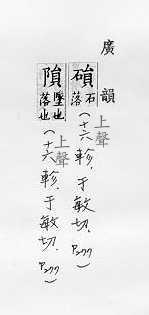 廣韻
磒 石落 上聲(十六軫.于敏切.P277)
隕 墜也落也 上聲(十六軫.于敏切.P277)